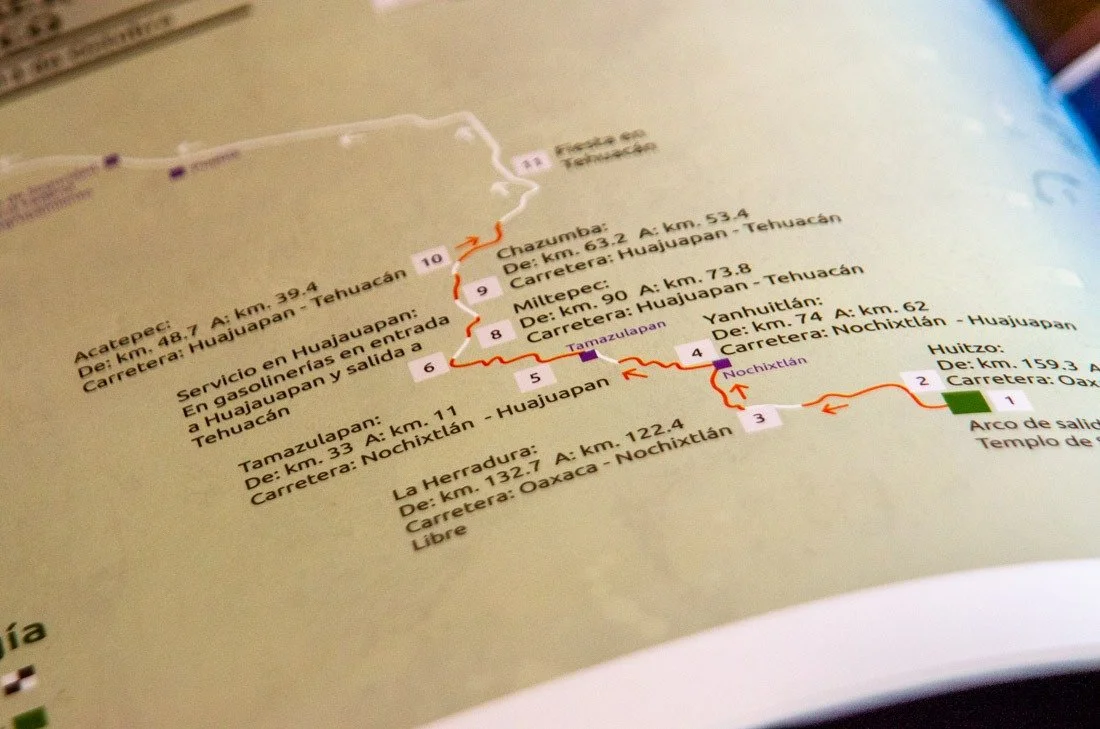 11
Fiesta en
Tehuacán
Chazumba:
De: km. 63.2 A: km. 53.4
Carretera: Huajuapan - Tehuacán
10
9
Acatepec:
De: km. 48.7 A: km. 39.4
Carretera: Huajuapan - Tehuacán
Miltepec:
De: km. 90 A: km. 73.8
Carretera: Huajuapan - Tehuacán
8
Servicio en Huajuapan:
En gasolinerías en entrada
a Huajauapan y salida a
Tehuacán
6
Tamazulapan
5
Yanhuitlán:
De: km. 74 A: km. 62
Carretera: Nochixtlán - Huajuapan
4
Nochixtlán
Huitzo:
De: km. 159.3 A
Carretera: Oax
2
1
Arco de salid
Templo de
3
Tamazulapan:
De: km. 33 A: km. 11
Carretera: Nochixtlán - Huajuapan
La Herradura:
De: km. 132.7 A: km. 122.4
Carretera: Oaxaca - Nochixtlán
Libre
gía